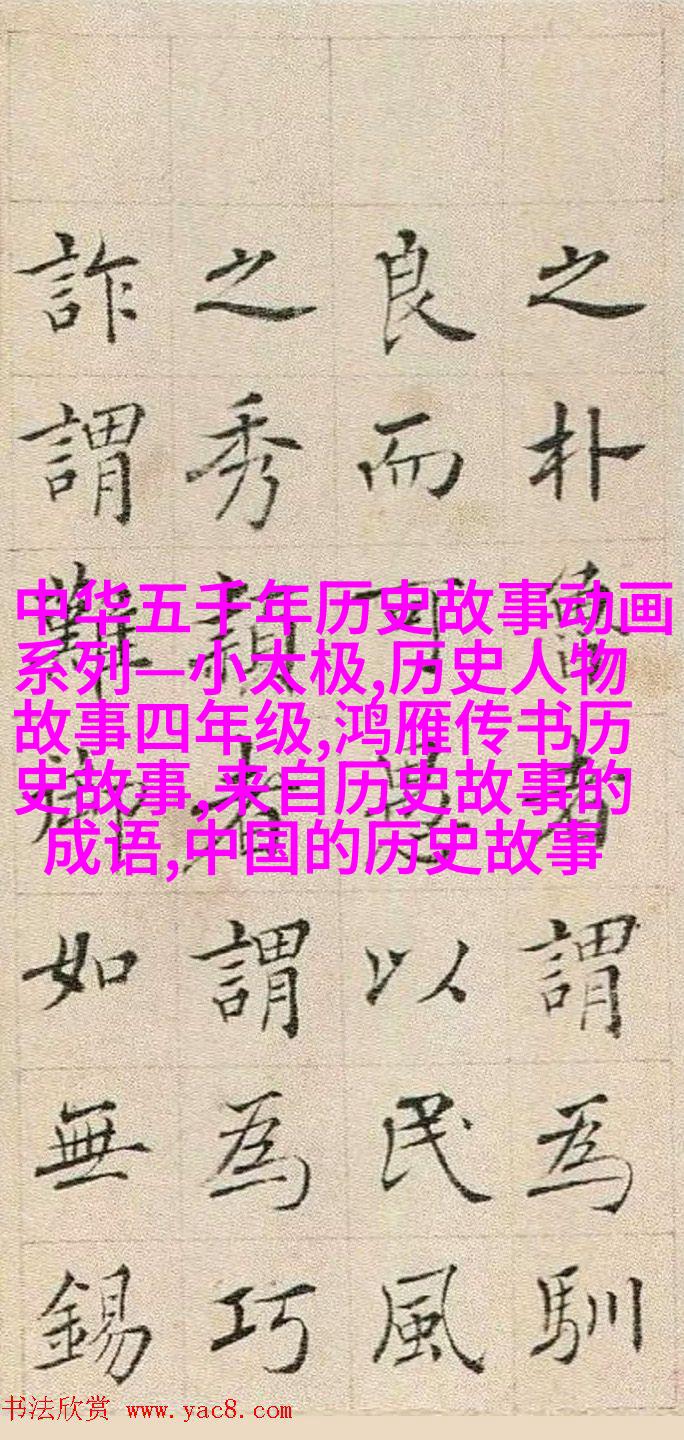 之朴魯者謂為馴
良而可以民風
之秀穎者謂為巧
詐謂難如無錫
中华五千年历史故事动画
系列—小太极,历史人物
故事四年级,鸿雁传书历
史故事,来自历史故事的
成语,中国的历史故事
书法欣赏 www.yac8.com